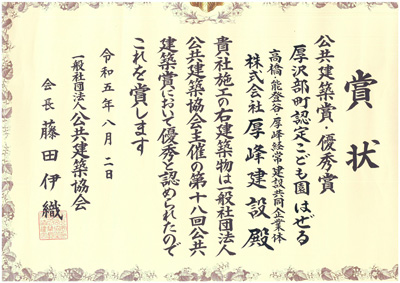 賞状
公共建築賞・優秀賞
厚沢部町認定こども園はぜる
高橋・能登谷・厚峰経常建設共同企業体
株式会社厚峰建設殿
貴社施工の右建築物は一般社団法人
公共建築協会主催の第十八回公共
建築賞において優秀と認められたので
これを賞します
令和五年八月二日
一般社団法人公共建築協会
会長藤田伊織